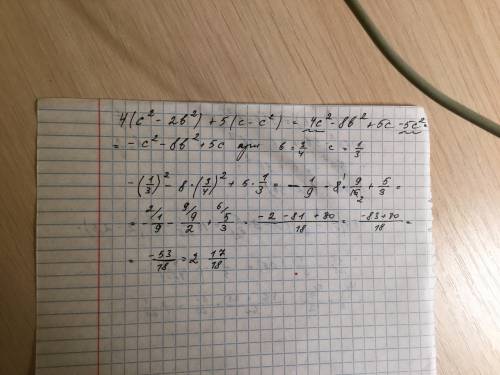 4(c² - 2b²) + 5(c - c²) = 4c² - 8b² + 5c - 5c² =
= - c² - 8b² + 5c при b = 3/4 c = 1/3
-(1/3)² - 8·(3/4)² + 5·1/3 = - 1/9 - 8¹·9/16₂ + 5/3 =
= - ²/1/9 - ⁹/9/2 + ⁶/5/3 = -2 -81 +30/18 = -83+30/18 =
= -53/18 = 2 17/18